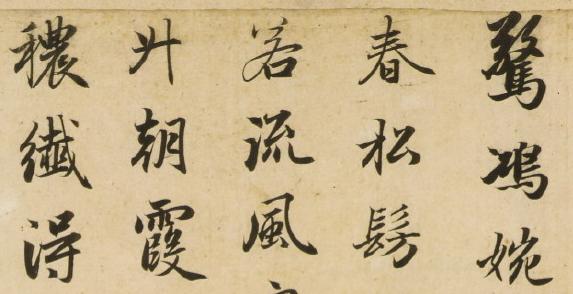 驚鴻婉
春松髣
若流風
升朝霞
穠纖得